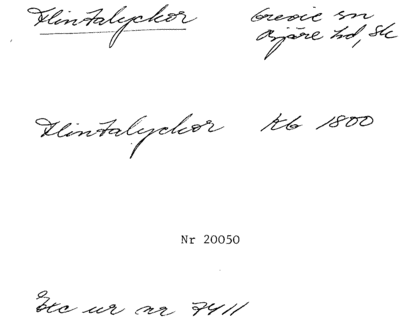 Flintalyckor Grevie sn
Bjäre hd, Sk
Flintalyckor Kb 1800
Nr 20050
Exc ur nr 7411